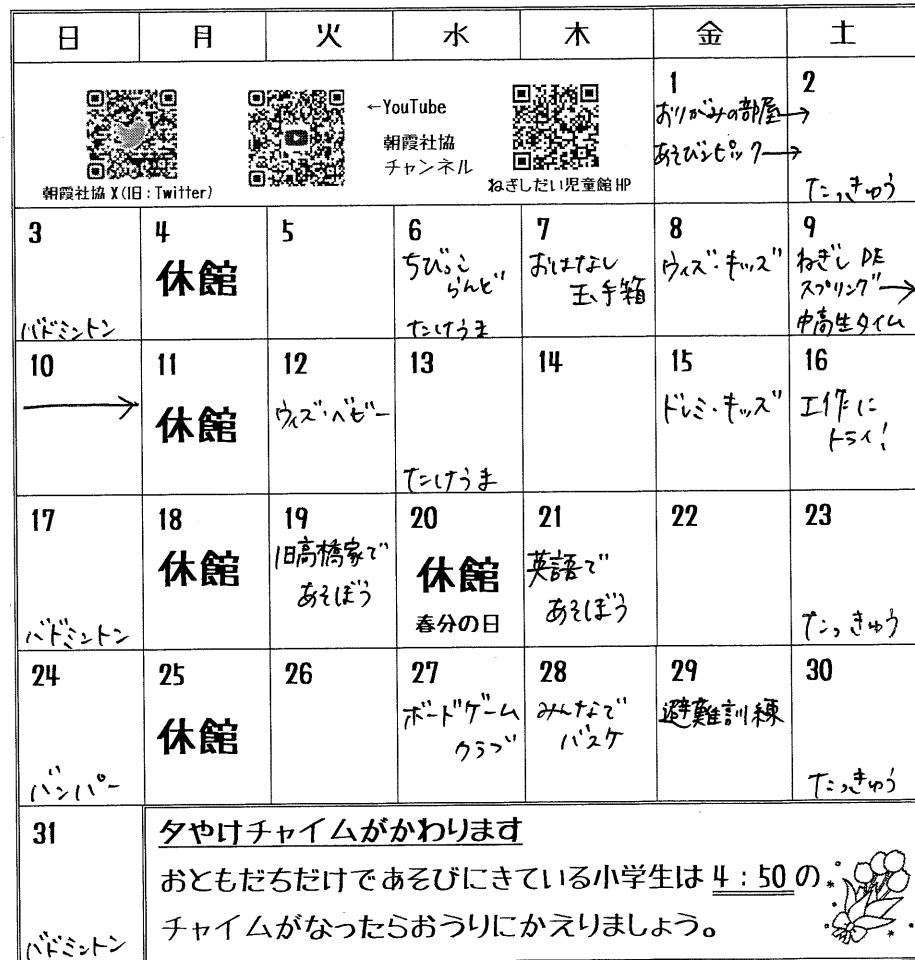 日 月 火 水 木 金 土
←YouTube
朝霞社協
チャンネル
朝霞社協 X(旧:Twitter)
ねぎしだい児童館 HP
1
おりがみの部屋→
あそびンピック→
2
たっきゅう
3
バドミントン
4
休館
5
6
ちびっこ
らんど
たけうま
7
おはなし
玉手箱
8
ウィズ・キッズ
9
ねぎし DE
スプリング→
中高生タイム
10
→
11
休館
12
ウィズ・ベビー
13
たけうま
14
15
ドレミ・キッズ
16
工作に
トライ!
17
バドミントン
18
休館
19
旧高橋家で
あそぼう
20
休館
春分の日
21
英語で
あそぼう
22
23
たっきゅう
24
バンパー
25
休館
26
27
ボードゲーム
クラブ
28
みんなで
バスケ
29
避難訓練
30
たっきゅう
31
バドミントン
夕やけチャイムがかわります
おともだちだけであそびにきている小学生は 4:50 の
チャイムがなったらおうりにかえりましょう。